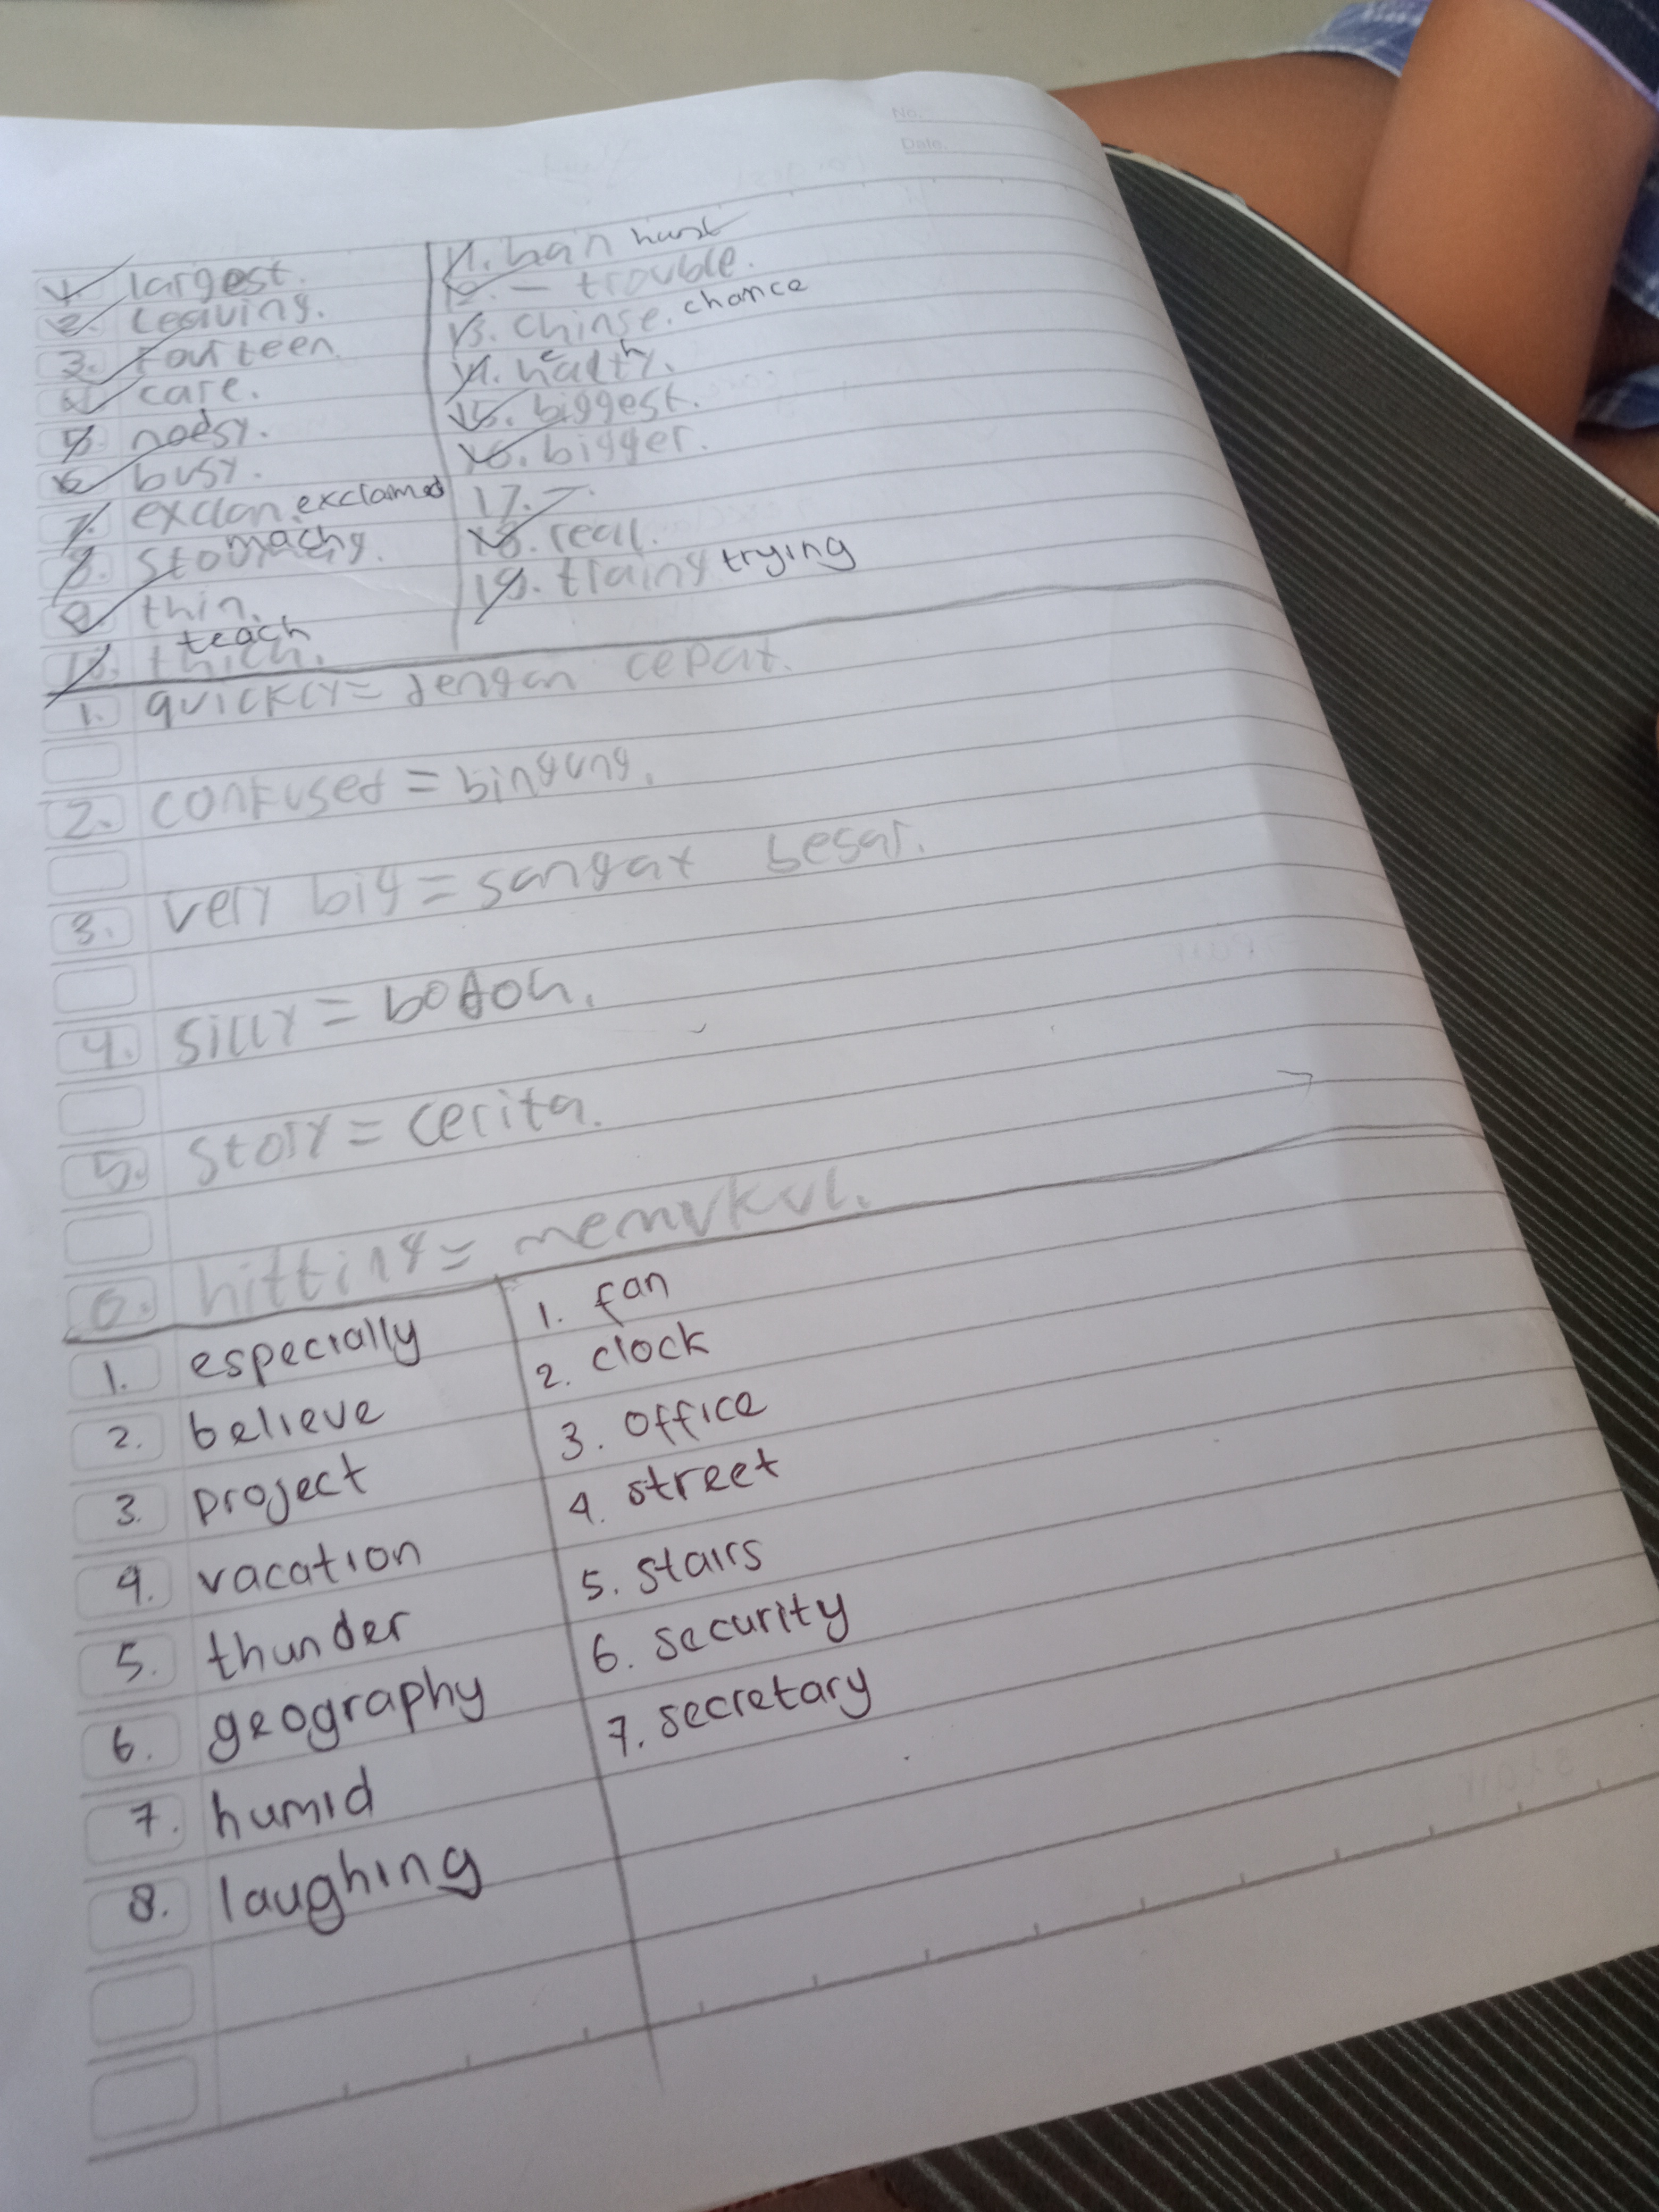 No.
Date.
1. largest.
2. leaving.
3. Fourteen.
4. care.
5. noesy.
6. busy.
7. exclan. exclamed
8. stomachy.
9. thin.
10. thich. teach
11. han hunt
12. – trouble.
13. chinse. chance
14. healthy.
15. biggest.
16. bigger.
17. –.
18. real.
19. trainy trying
1. quickly = dengan cepat.
2. confused = bingung.
3. very big = sangat besar.
4. silly = bodoh.
5. story = cerita.
6. hitting = memukul.
1. especially
2. believe
3. project
4. vacation
5. thunder
6. geography
7. humid
8. laughing
1. fan
2. clock
3. office
4. street
5. stairs
6. security
7. secretary